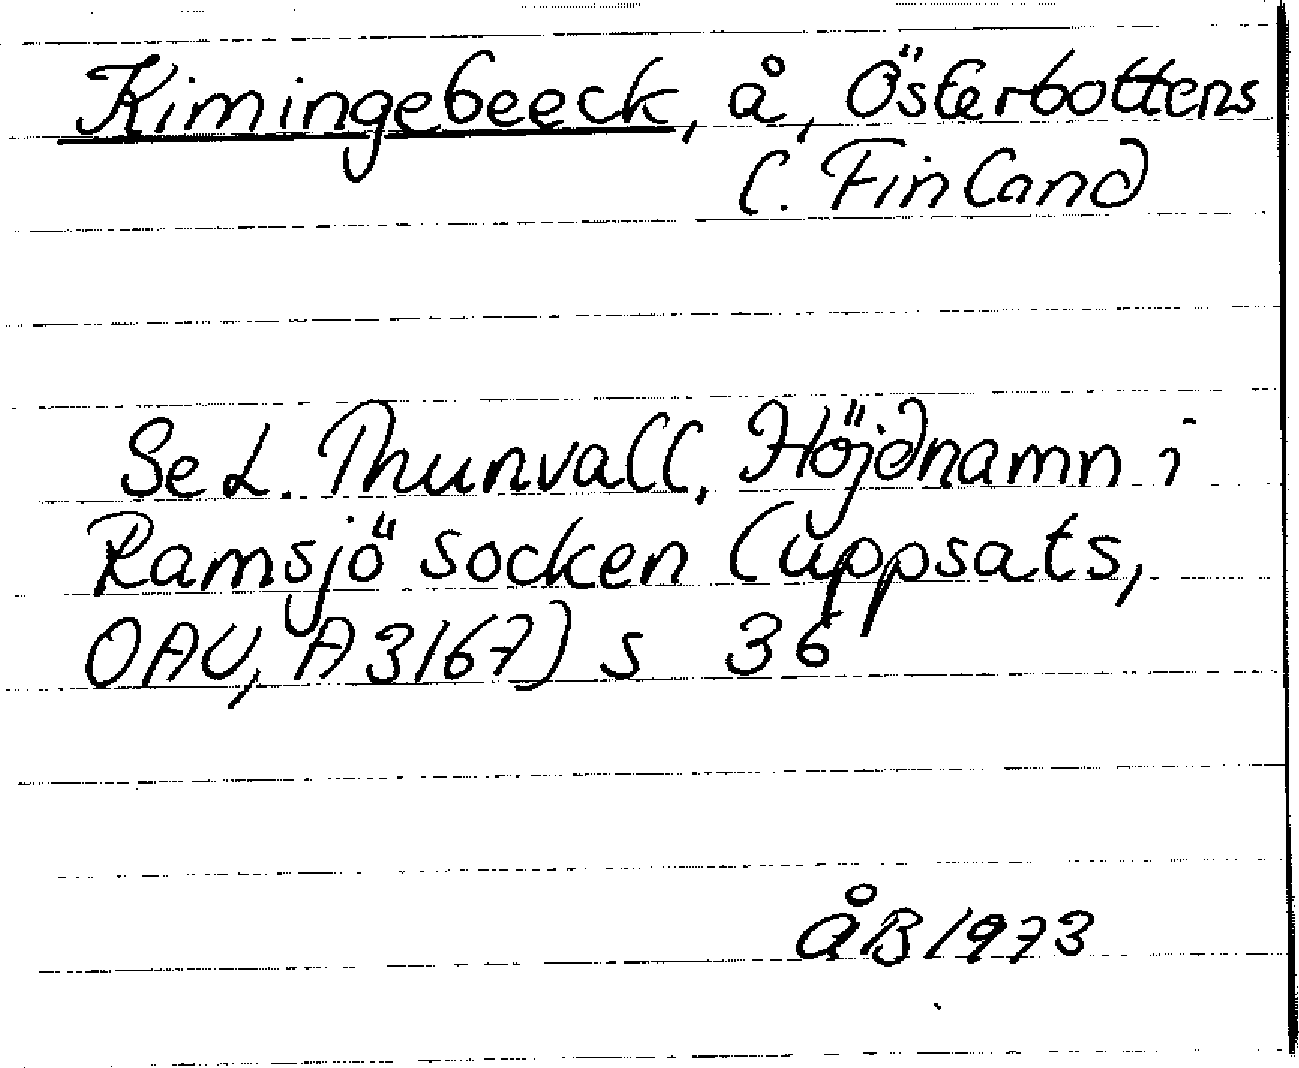 Kimingebeeck, å, Österbottens
l. Finland
Se L. Thunvall, Höjdnamn i
Ramsjö socken (uppsats,
OAU, A3167) s 36
åB 1973